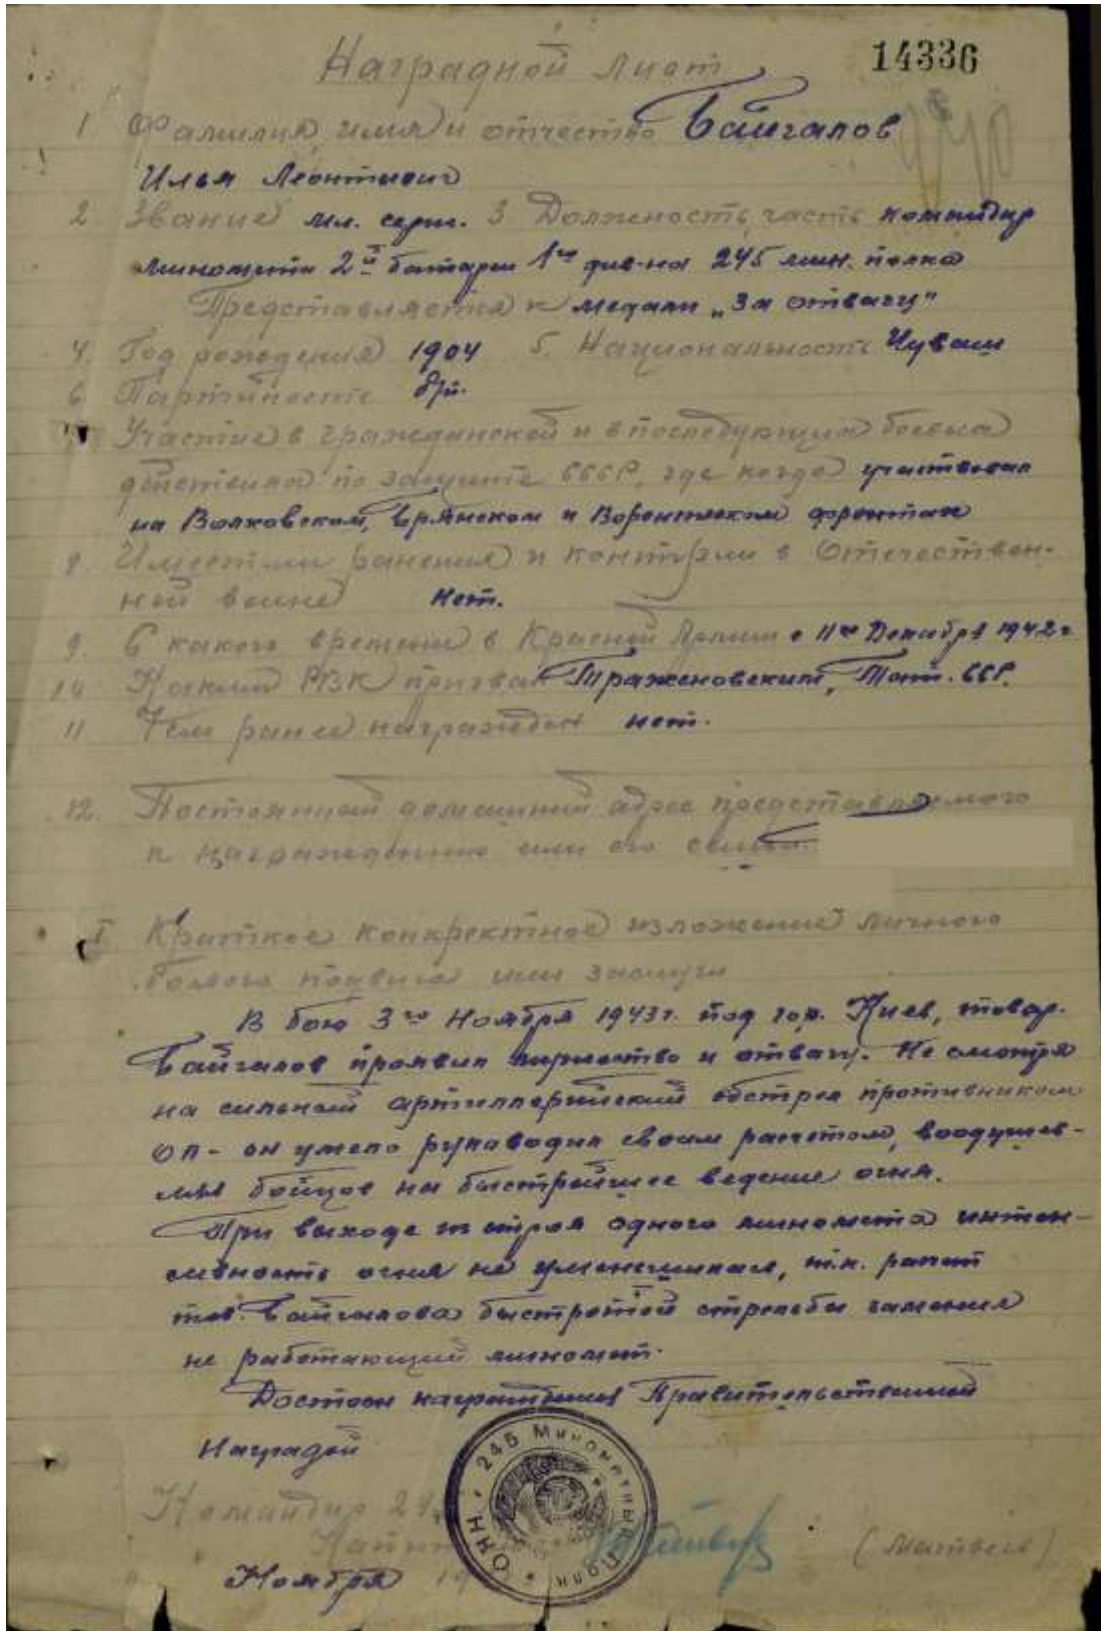 Наградной лист
14336
1 Фамилия, имя и отчество Байгалов
Илья Леонтьевич
2. Звание мл. серж. 3 Должность, часть командир
миномета 2й батареи 1го див-на 245 мин. полка
Представляется к медали „За отвагу"
4. Год рождения 1904 5. Национальность Чуваш
6 Партийность б/п.
Участие в гражданской и в последующих боевых
действиях по защите СССР, где когда участвовал
на Волховском, Брянском и Воронежском фронтах
8. Имеет-ли ранения и контузии в Отечествен-
ной войне Нет.
9. С какого времени в Красной Армии с 11го Декабря 1942г
10 Каким РВК призван ССР.
11 Чем ранее награжден нет.
12. Постоянный домашний адрес представляемого
к награждению или его семьи.
I Краткое конкректное изложение личного
боевого подвига или заслуги
В бою 3го Ноября 1943г. под гор. Киев, товар.
Байгалов проявил мужество и отвагу. Не смотря
на сильный артиллерийский обстрел противником
ОП - он умело руководил своим расчетом, воодушев-
ляя бойцов на быстрейшее ведение огня.
При выходе из строя одного миномета интен-
сивность огня не уменьшилась, т.к. расчет
тов. Байгалова быстротой стрельбы заменил
не работающий миномет.
Достоин награждения Правительственной
Наградой
245 Минометный Полк
НКО
Командир 24
Капит (Матвеев)
Ноября 19